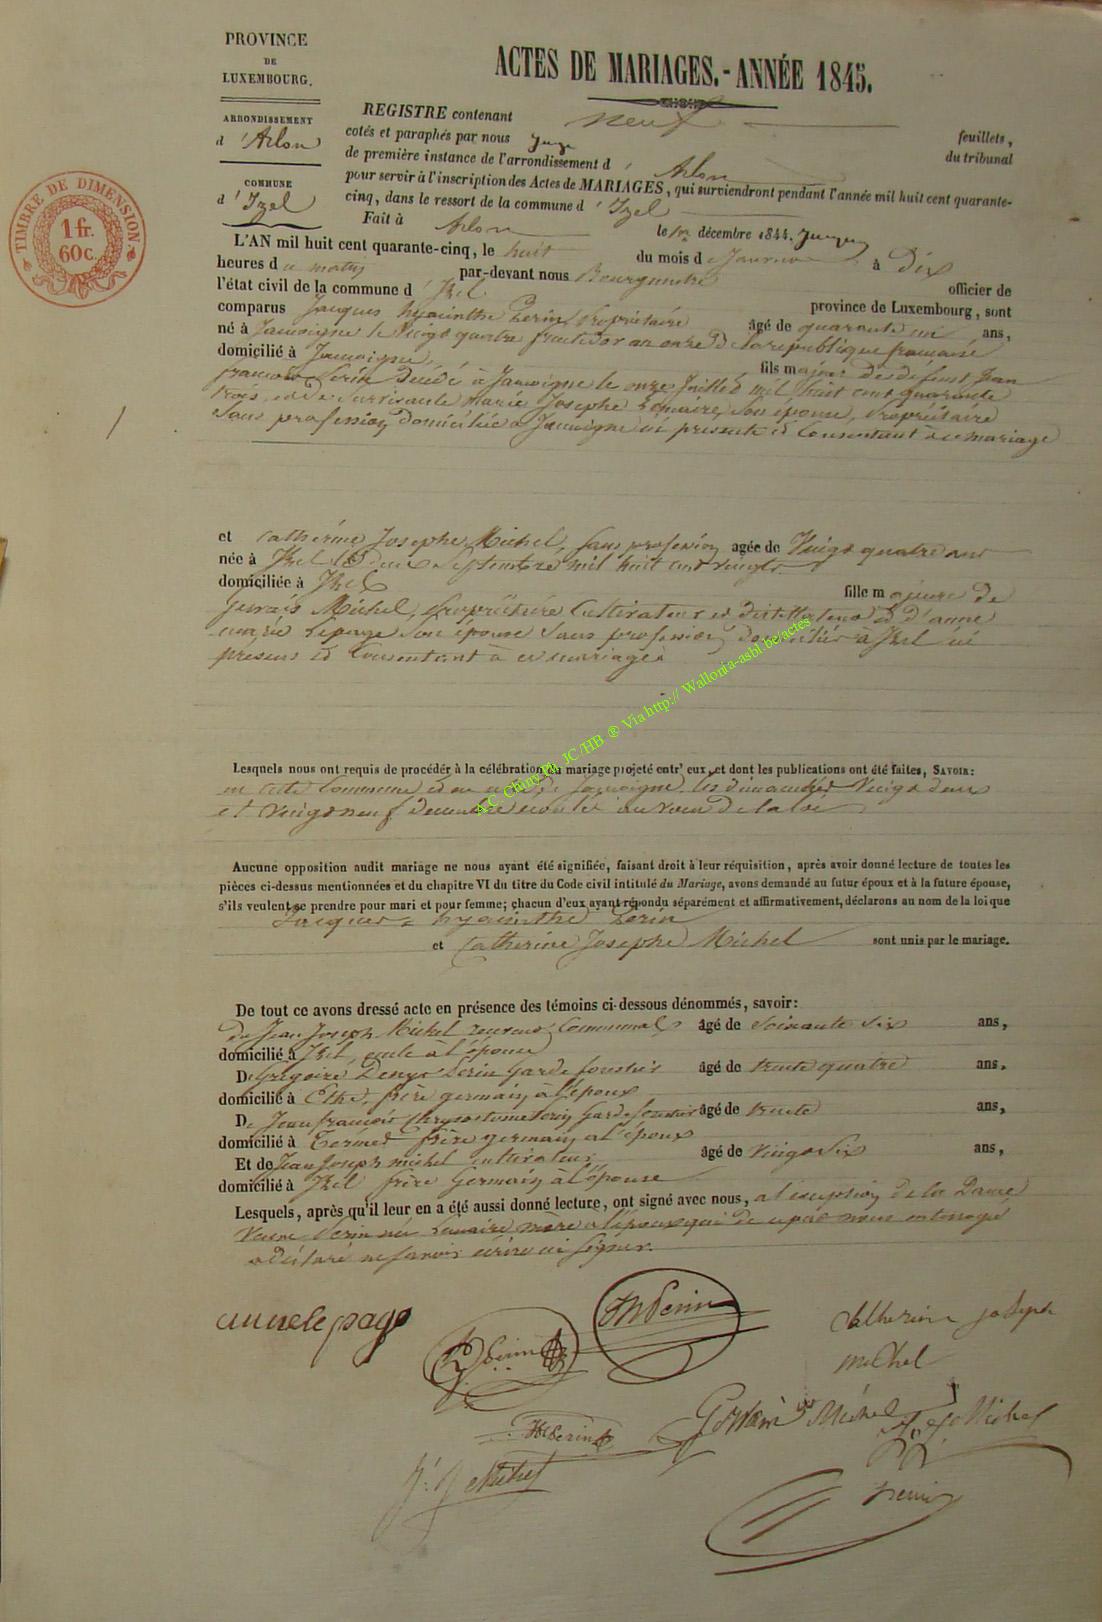 PROVINCE
DE
LUXEMBOURG.
ARRONDISSEMENT
d 'Arlon
COMMUNE
d 'Izel
TIMBRE DE DIMENSION
1 fr.
60c.
ACTES DE MARIAGES.-ANNÉE 1845.
REGISTRE contenant neuf feuillets,
cotés et paraphés par nous Juge du tribunal
de première instance de l'arrondissement d ' Arlon
pour servir à l'inscription des Actes de MARIAGES, qui surviendront pendant l'année mil huit cent quarante-
cinq, dans le ressort de la commune d 'Izel
Fait à Arlon le 1er décembre 1844.
L'AN mil huit cent quarante-cinq, le huit du mois de Janvier à Dix
heures du matin par-devant nous Bourgmestre officier de
l'état civil de la commune d 'Izel province de Luxembourg, sont
comparus Jacques hyacinthe Perin, propriétaire âgé de quarante un ans,
né à Jamoigne le Vingt quatre fructidor an onze de la république francaise
domicilié à Jamoigne, fils majeur de defunt Jean
francois Perin Decédé à Jamoigne le onze Juillet mil huit cent quarante
trois, et de survivante Marie Josephe Lemaire, son épouse, propriétaire
sans profession, domiciliée à Jamoigne ici presente et Consentant à ce mariage
et Catherine Josephe Michel, sans profession agée de Vingt quatre ans
née à Izel le Deux Septembre mil huit cent vingt
domiciliée à Izel fille majeure de
Gervais Michel, propriétaire Cultivateur et distillateur et d'anne
marie Lepage son épouse sans profession, domiciliés à Izel ici
presens et Consentant à ce mariage.
A.C. Chiny Ph. JC/HB ® Via http:// Wallonia-asbl.be/actes
Lesquels nous ont requis de procéder à la célébration du mariage projeté entr' eux, et dont les publications ont été faites, SAVOIR:
en cette Commune et en celle de Jamoigne, les dimanches Vingt deux
et Vingt neuf Decembre écoulé au voeu de la loi
Aucune opposition audit mariage ne nous ayant été signifiée, faisant droit à leur réquisition, après avoir donné lecture de toutes les
pièces ci-dessus mentionnées et du chapitre VI du titre du Code civil intitulé du Mariage, avons demandé au futur époux et à la future épouse,
s'ils veulent se prendre pour mari et pour femme; chacun d'eux ayant répondu séparément et affirmativement, déclarons au nom de la loi que
Jacques = hyacinthe Perin
et Catherine Josephe Michel sont unis par le mariage.
De tout ce avons dressé acte en présence des témoins ci-dessous dénommés, savoir:
du Jean Joseph Michel receveur Communal âgé de Soixante Six ans,
domicilié à Izel, oncle à l'épouse
De Grégoire Denys Perin Garde forestier âgé de trente quatre ans,
domicilié à Ethe, frère germain à l'époux
De Jean francois Chrysostome Perin Garde forestier âgé de trente ans,
domicilié à Termes frère germain à l'époux
Et de Jean Joseph michel cultivateur âgé de Vingt Six ans,
domicilié à Izel frère Germain à l'épouse
Lesquels, après qu'il leur en a été aussi donné lecture, ont signé avec nous, a l'exception de la Dame
Veuve Perin née Lemaire mère a l'époux qui de ce par nous interrogé
a déclaré ne savoir écrire ni signer.
anne le page
Perin
Perin
Catherine joseph
michel
Perin
Michel
Michel